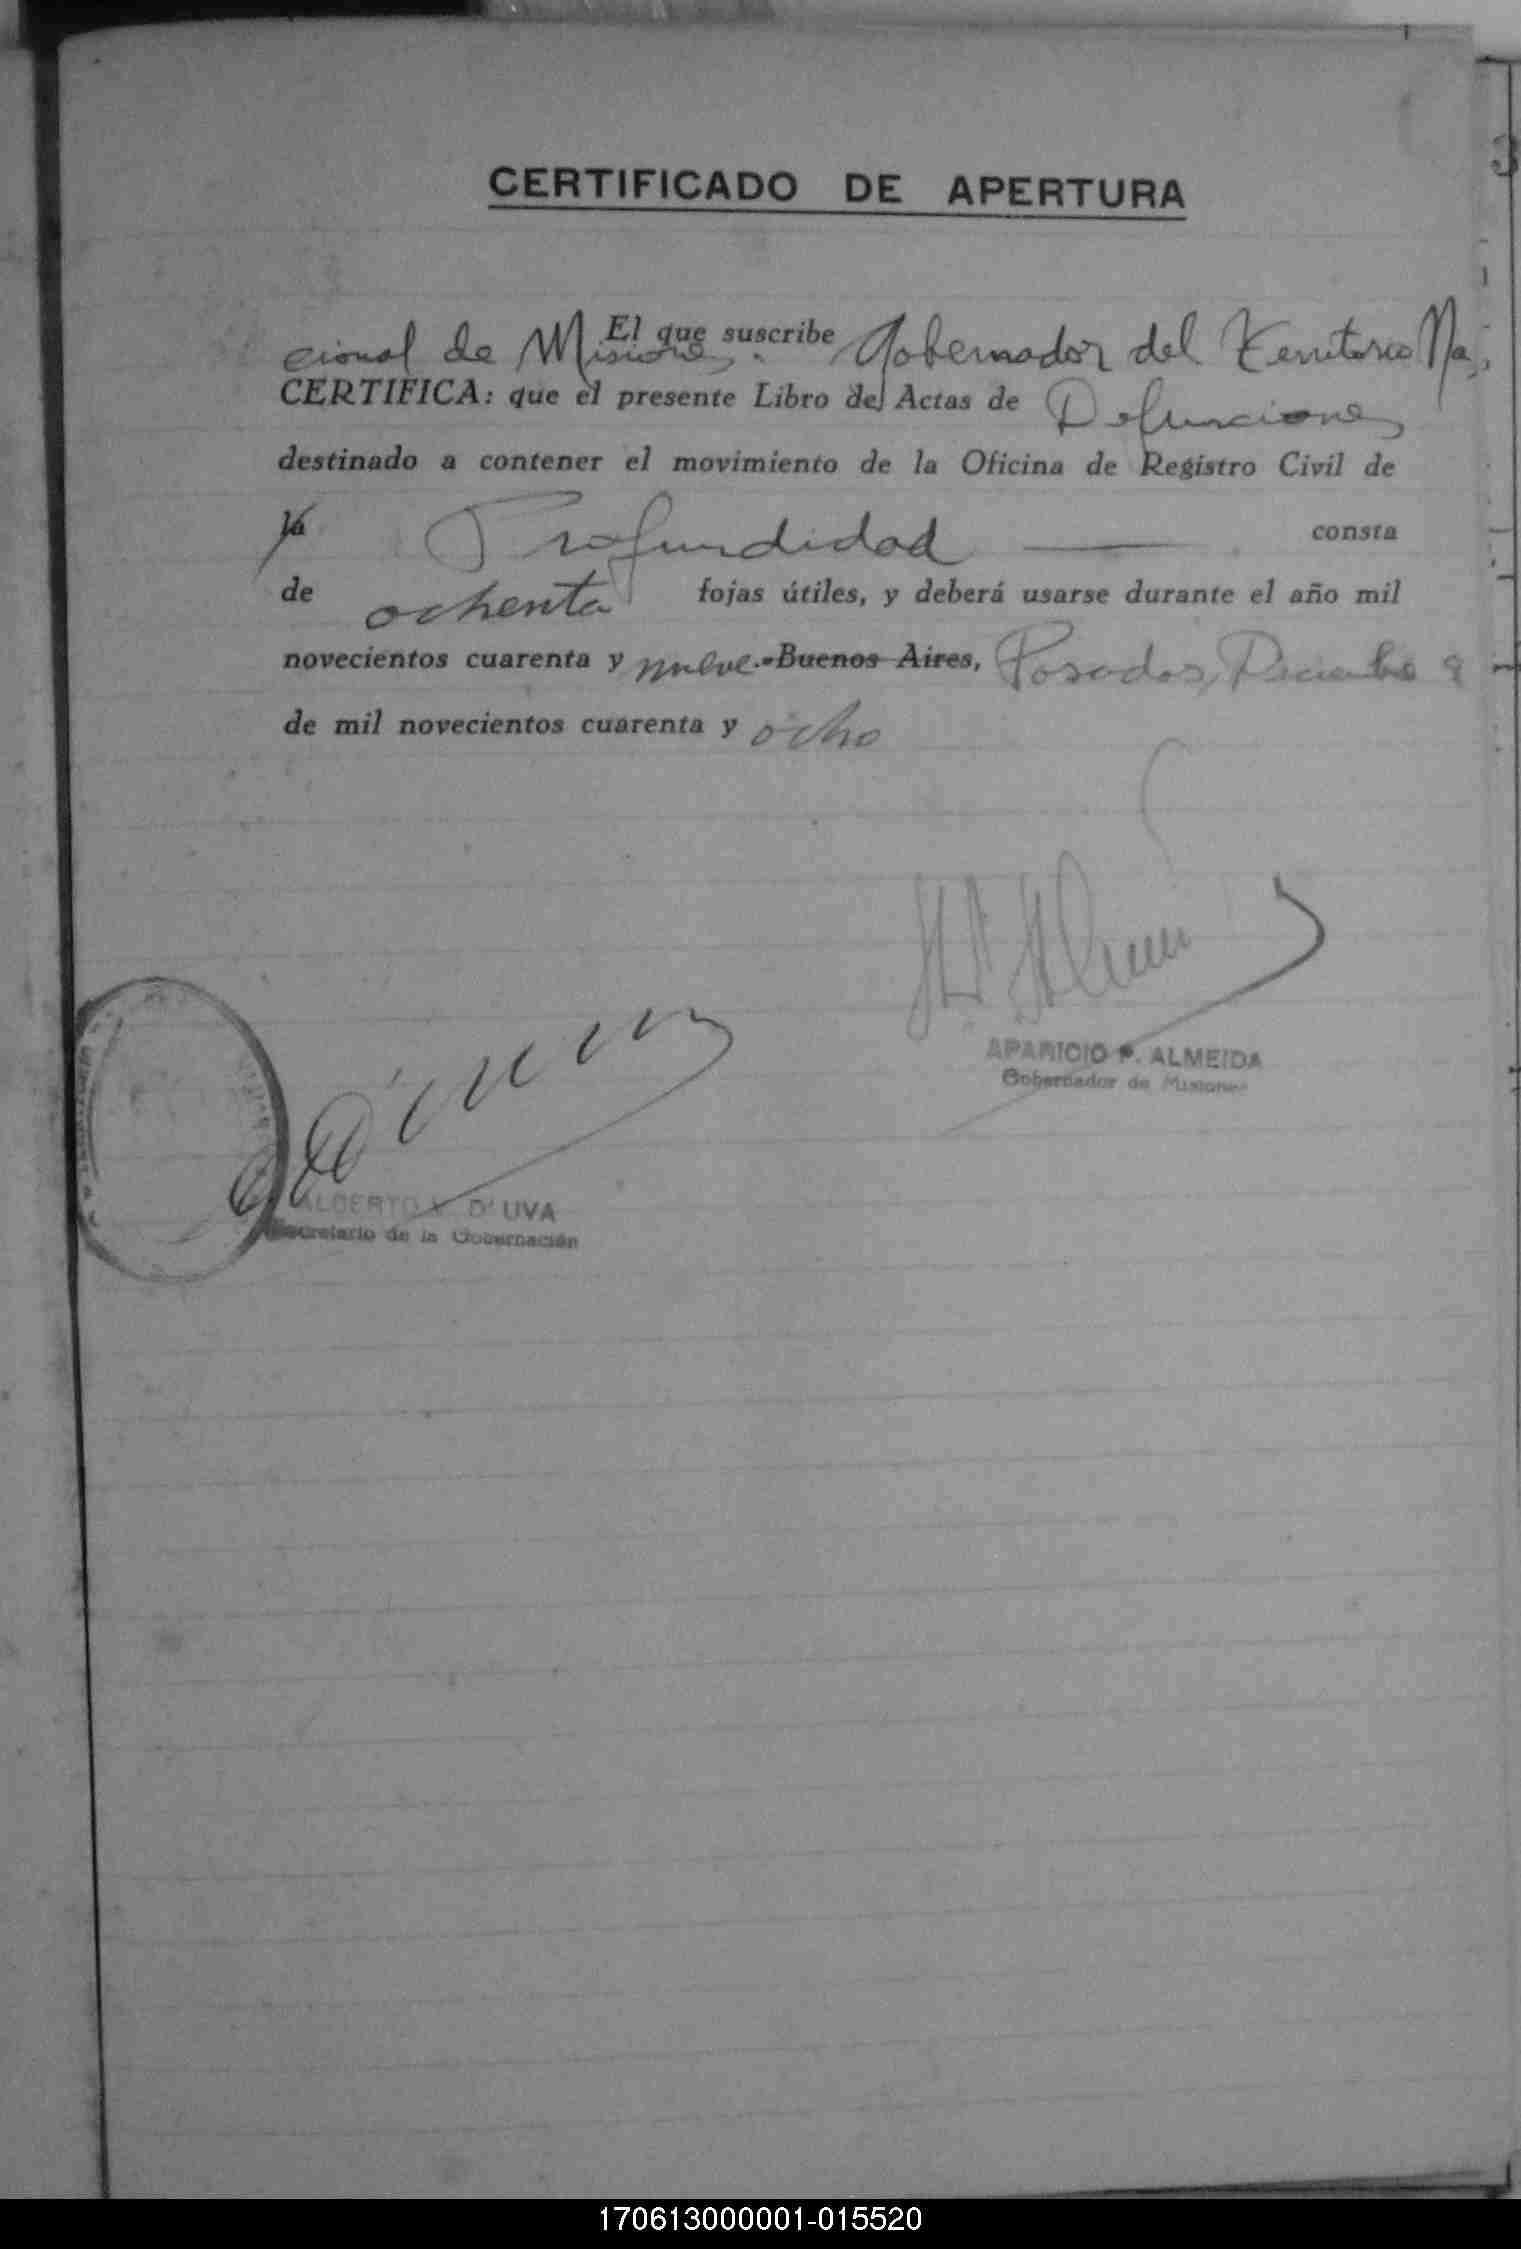 CERTIFICADO DE APERTURA
El que suscribe Gobernador del Territorio Na-
cional de Misiones.
CERTIFICA: que el presente Libro de Actas de Defunciones
destinado a contener el movimiento de la Oficina de Registro Civil de
la Profundidad consta
de ochenta fojas útiles, y deberá usarse durante el año mil
novecientos cuarenta y nueve.-Buenos Aires, Posadas, Diciembre 9
de mil novecientos cuarenta y ocho
APARICIO P. ALMEIDA
Gobernador de Misiones
ALBERTO V. D'UVA
Secretario de la Gobernación
170613000001-015520